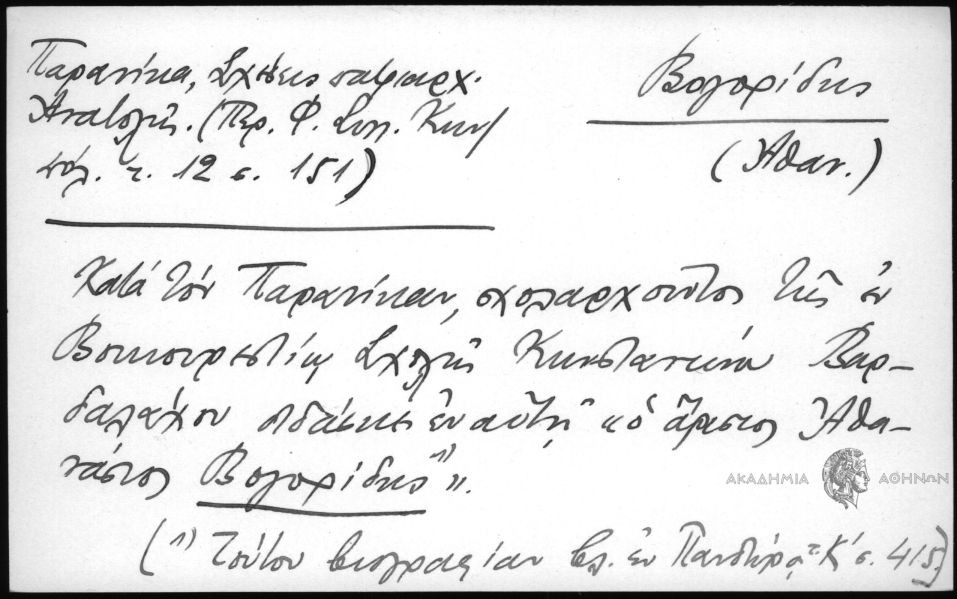 Παρανίκα, Σχέσεις πατριαρχ.
Ανατολῆς. (Περ. Φ. Συλ. Κων/
πόλ. τ. 12 σ. 151)
Βογορίδης
(Ἀθαν.)
Κατά τόν Παρανίκαν, σχολαρχοῦντος τῆς ἐν
Βουκουρεστίῳ Σχολῆς Κωνσταντίνου Βαρ-
δαλάχου ἐδίδασκεν ἐν αὐτῇ "ὁ ἄριστος Ἀθα-
νάσιος Βογορίδης¹⁾".
(¹⁾ Τούτου βιογραφίαν βλ. ἐν Πανδώρᾳ τ. Κ΄ σ. 415)
ΑΚΑΔΗΜΙΑ ΑΘΗΝΩΝ